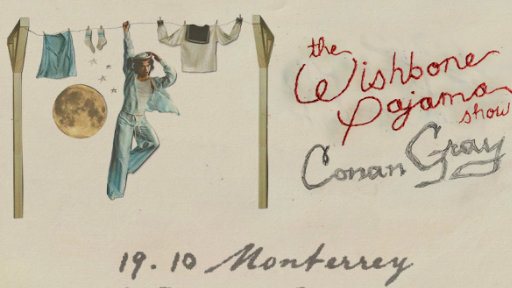 the
Wishbone
Pajama
show
Conan Gray
19.10 Monterrey